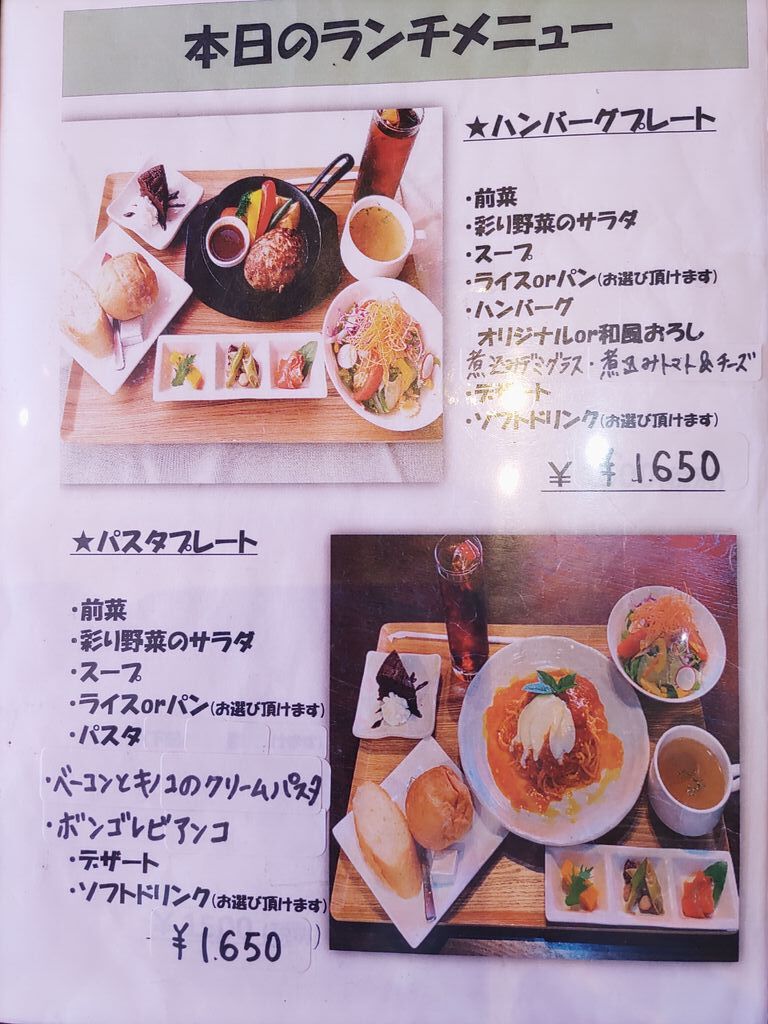 本日のランチメニュー
★ハンバーグプレート
・前菜
・彩り野菜のサラダ
・スープ
・ライスorパン(お選び頂けます)
・ハンバーグ
オリジナルor和風おろし
煮込みデミグラス・煮込みトマト&チーズ
・デザート
・ソフトドリンク(お選び頂けます)
¥ ¥1.650
★パスタプレート
・前菜
・彩り野菜のサラダ
・スープ
・ライスorパン(お選び頂けます)
・パスタ
・ベーコンとキノコのクリームパスタ
・ボンゴレビアンコ
・デザート
・ソフトドリンク(お選び頂けます)
¥1.650